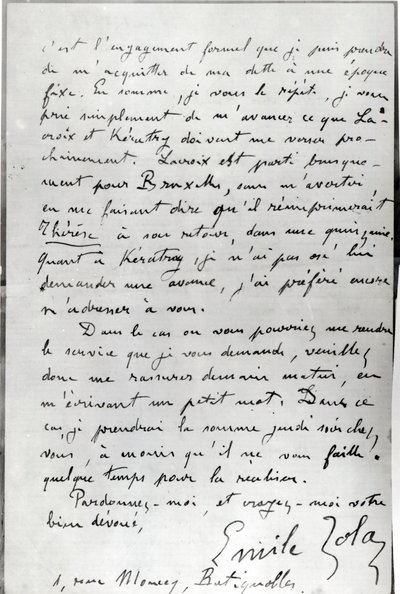 c'est l'engagement formel que je puis prendre
de m'acquitter de ma dette à une époque
fixe. En somme, je vous le répète, je vous
prie simplement de m'avancer ce que La-
croix et Kératry doivent me verser pro-
chainement. Lacroix est parti brusque-
ment pour Bruxelles, sans m'avertir,
en me faisant dire qu'il réimprimerait
Thérèse à son retour, dans une quinzaine.
Quant à Kératry, je n'ai pas osé lui
demander une avance, j'ai préféré encore
m'adresser à vous.
Dans le cas où vous pourriez me rendre
le service que je vous demande, veuillez
donc me rassurer demain matin, en
m'écrivant un petit mot. Dans ce
cas, je prendrai la somme jeudi soir chez
vous, à moins qu'il ne vous faille
quelque temps pour la réaliser.
Pardonnez-moi, et croyez-moi votre
bien dévoué,
Emile Zola
1, rue Moncey, Batignolles